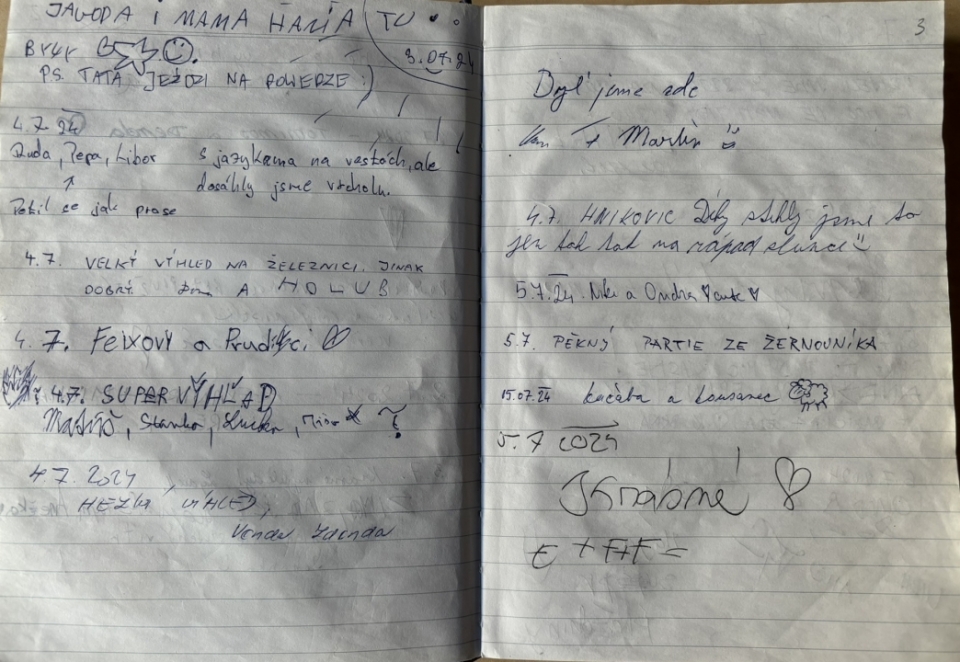 JAGODA I MAMA HANIA TU
3.07.24
BYŁY
PS. TATA JEŹDZI NA ROWERZE :)
4.7.24
Ruda, Pepa, Libor s jazykama na vestách, ale
dosáhly jsme vrcholu.
Potil se jak prase
4.7. VELKÝ VÝHLED NA ŽELEZNICI. JINAK
DOBRÝ A HOLUB
4.7. Feixovi a
4.7. SUPER VÝHLAD
Stanka,
4.7. 2024
HEZKÝ VÝHLED,
Zdenda
3
Byl jsme zde
+ Martin
4.7. HNIKOVIC Děly stihly jsme to
jen tak tak na západ slunce
5.7.24. Niki a Ondra
5.7. PĚKNÝ PARTIE ZE ŽERNOVNÍKA
15.07.24 Kačaba a
5.7 2024
Krásné
E + F+F =